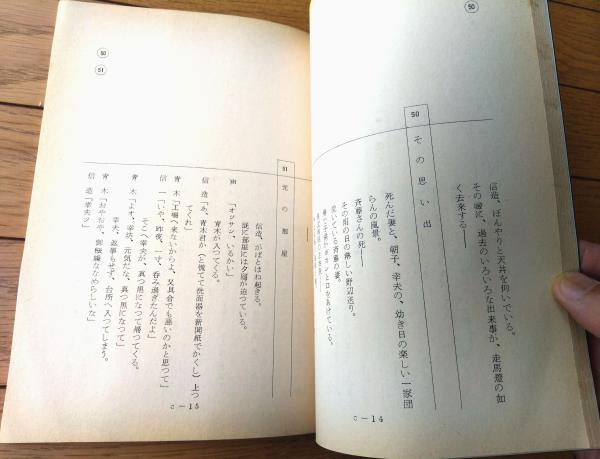 50
信造、ぼんやりと天井を仰いでいる。
その瞼に、過去のいろいろな出来事が、走馬燈の如
く去来する――
50
その思い出
死んだ妻と、朝子、幸夫の、幼き日の楽しい一家団
らんの風景。
斉藤さんの死――
その雨の日の淋しい野辺送り。
泣いている斉藤の妻。
c―14
50
51
51
元の部屋
信造、がばとはね起きる。
既に部屋には夕闇が迫つている。
声「オッサン、いるかい」
青木が入つてくる。
信造「あ、青木君か（と慌てて洗面器を新聞紙でかくし）上つ
てくれ」
青木「工場へ来ないからよ、又具合でも悪いのかと思つて」
信一「いや、昨夜、一寸、呑み過ぎたんだよ」
そこへ幸夫が、真つ黒になつて帰つてくる。
青木「よオ、幸坊、元気だな。真つ黒になつて」
幸夫、返事もせず、台所へ入つてしまう。
青木「おやおや、御機嫌ななめらしいな」
信造「幸夫ッ」
c―15